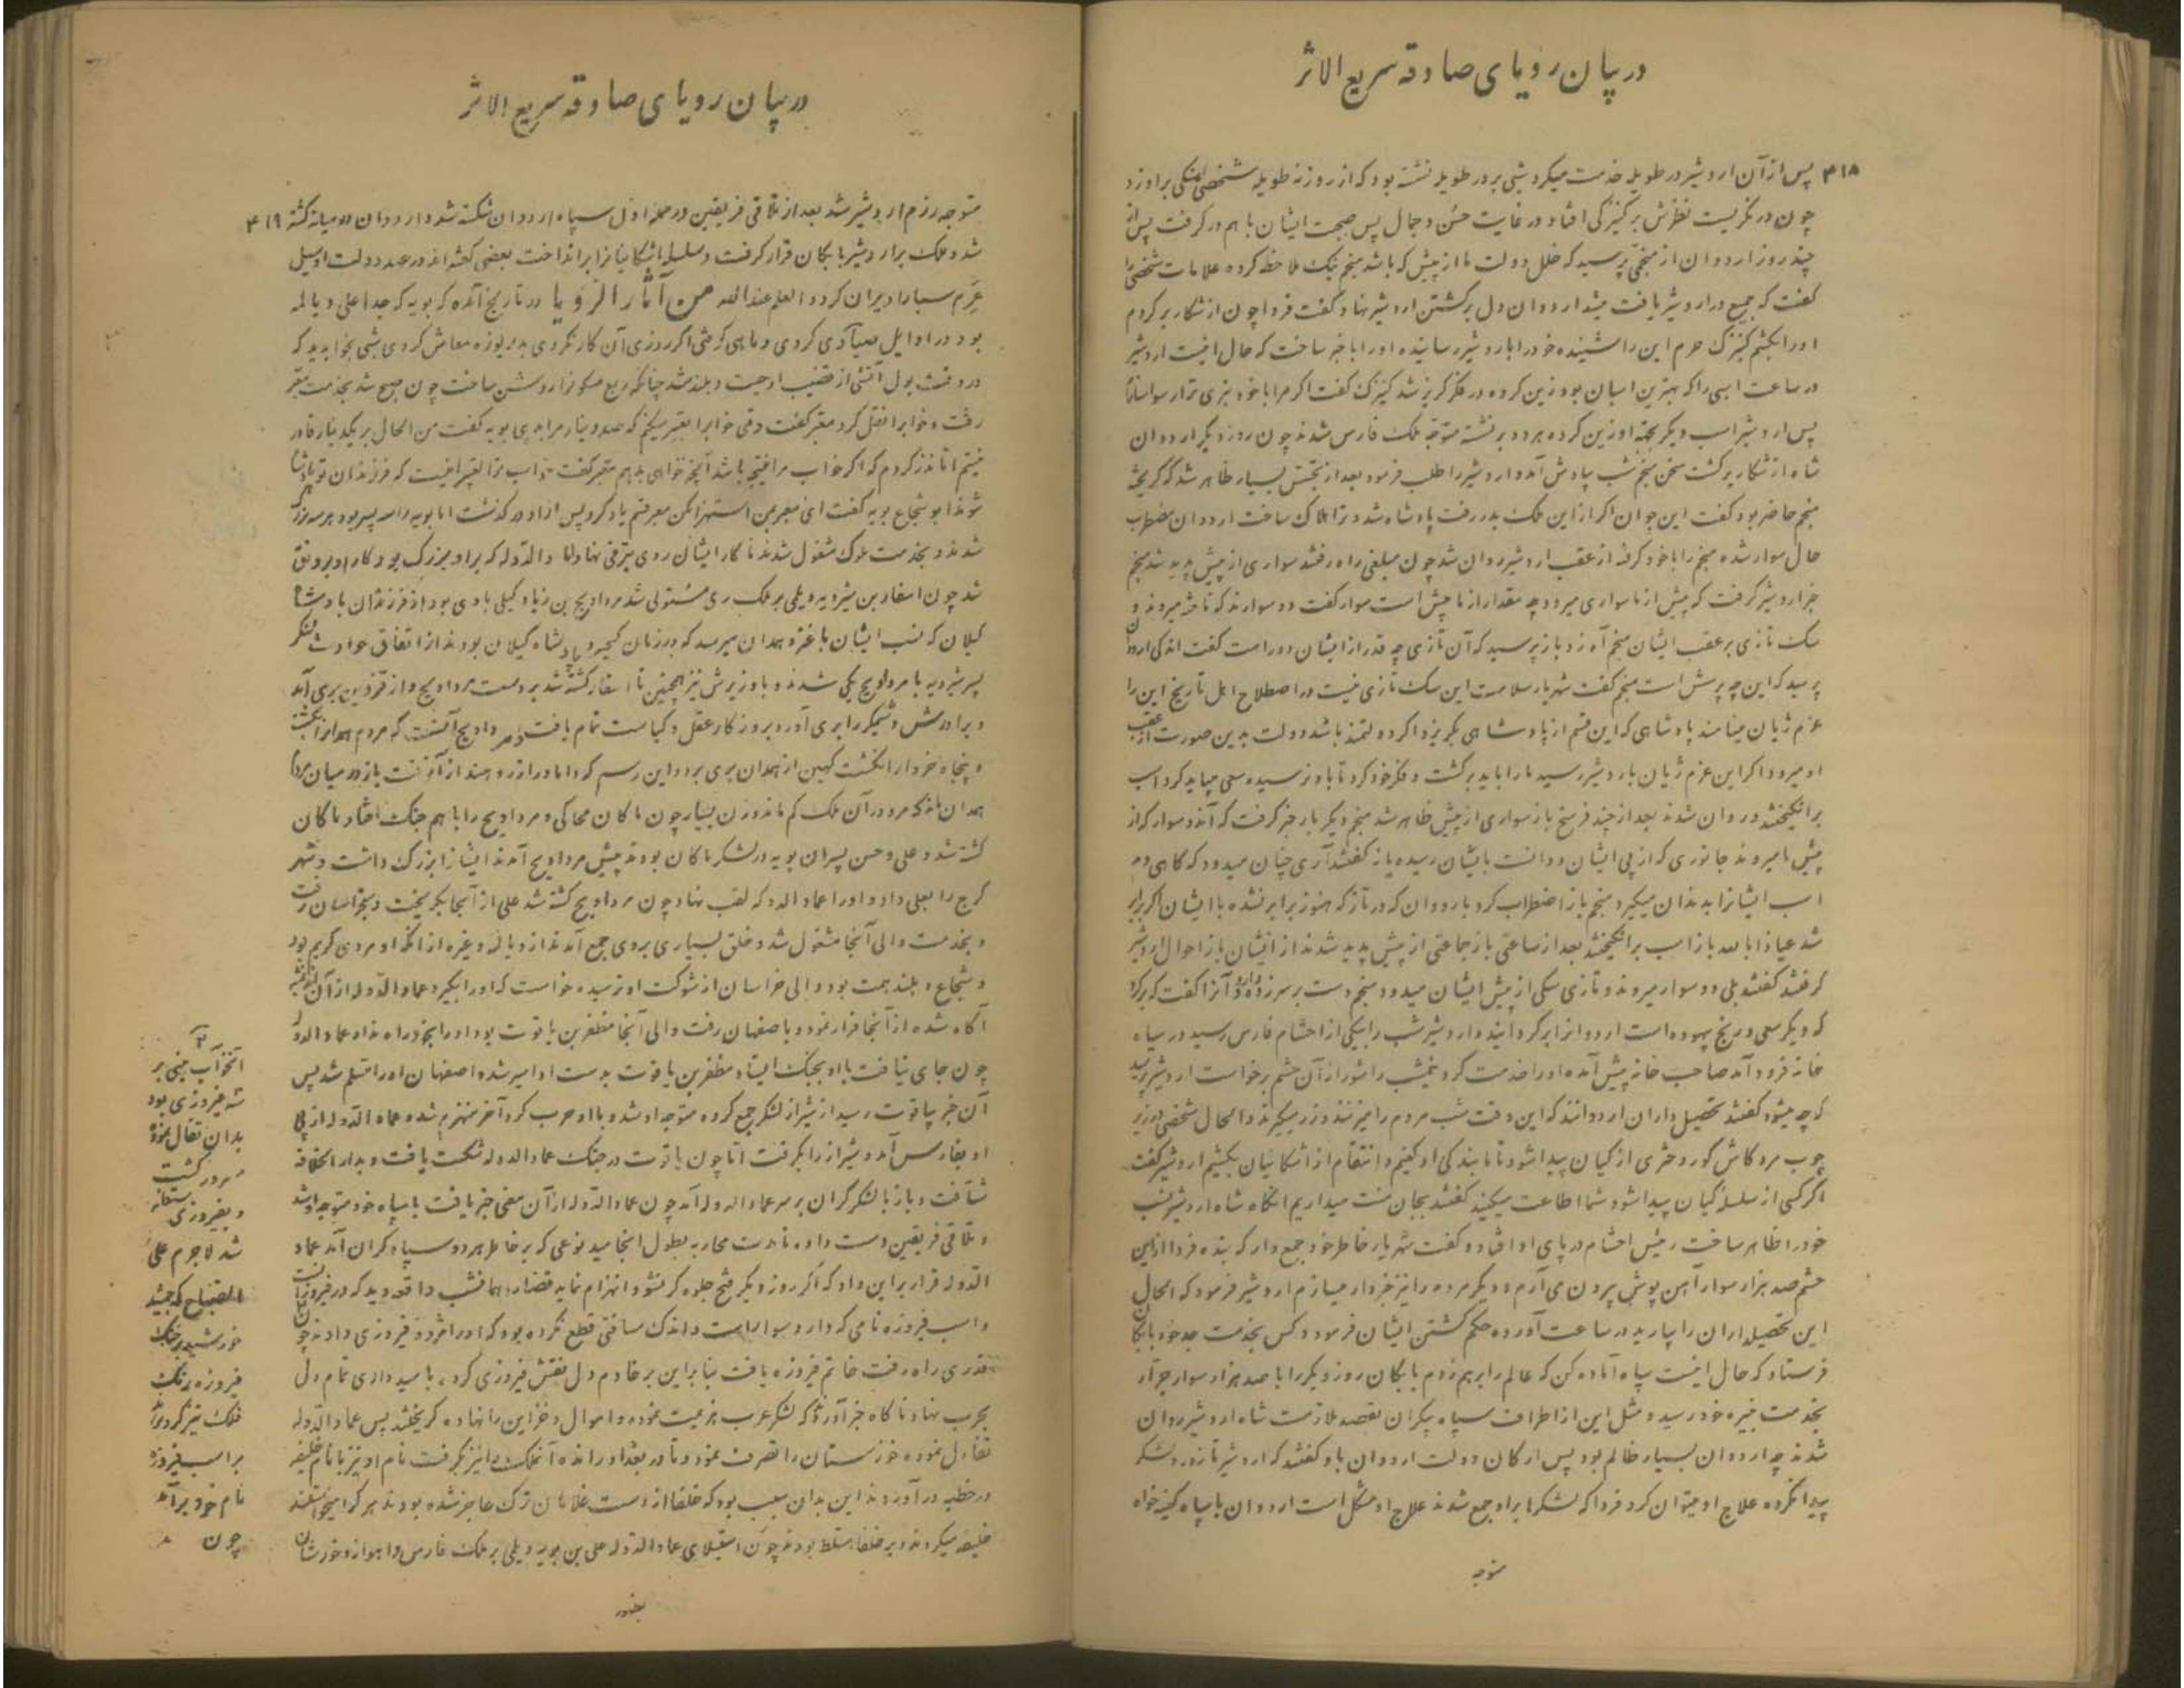 در بیان رویای صادقه سریع الاثر
۴۱۸ پس از آن اردشیر در طویله خدمت میکرد شبی بر در طویله نشسته بود که از روزنه طویله شخصی سنگی بر او زد
چون در نگریست نظرش بر کنیزکی افتاد در غایت حسن و جمال پس صحبت ایشان با هم در گرفت پس از
چند روز اردوان از منجمی پرسید که خلل دولت ما از پیش که باشد منجم نیک ملاحظه کرده علامات شخصی را
گفت که جمیع در اردشیر یافت میشد اردوان دل بر کشتن اردشیر نهاد و گفت فردا چون از شکار بر گردم
او را بکشم کنیزک حرم این را شنیده خود را باردشیر رسانیده او را با خبر ساخت که حال اینست اردشیر
در ساعت اسبی را که بهترین اسبان بود زین کرده در فکر گریز شد کنیزک گفت اگر مرا با خود نبری ترا رسوا سازم
پس اردشیر اسب دیگر بجهة او زین کرده هر دو بر نشسته متوجه ملک فارس شدند چون روز دیگر اردوان
شاه از شکار برگشت سخن منجم شب بیادش آمد و اردشیر را طلب فرمود بعد از تجسس بسیار ظاهر شد که گریخته
منجم حاضر بود گفت این جوان اگر از این ملک بدر رفت پادشاه شد و ترا هلاک ساخت اردوان مضطرب
حال سوار شده منجم را با خود گرفته از عقب اردشیر روان شد چون مبلغی راه رفتند سواری از پیش پدید شد منجم
خبر اردشیر گرفت که پیش از ما سواری میرود چه مقدار از ما پیش است سوار گفت دو سوارند که تاخته میروند و
سک تازی بر عقب ایشان منجم آه زد باز پرسید که آن تازی چه قدر از ایشان دور است گفت اندکی اردوان
پرسید که این چه پرسش است منجم گفت شهریار سلامت این سک تازی نیست در اصطلاح اهل تاریخ این را
غرم ژیان مینامند پادشاهی که این قسم از پادشاهی بگریزد اگر دولتمند باشد دولت بدین صورت از عقب
او میرود اگر این غرم ژیان باردشیر رسید ما را باید برگشت و فکر خود کرد تا باو نرسیده سعی میباید کرد اسب
برانگیختند و روان شدند بعد از چند فرسخ باز سواری از پیش ظاهر شد منجم دیگر بار خبر گرفت که آندو سوار که از
پیش ما میروند جانوری که از پی ایشان دوانست بایشان رسیده یا نه گفتند آری چنان میدود که گاهی دم
اسب ایشانرا بدندان میگیرد منجم باز اضطراب کرد باردوان که در تاز که هنوز برابر نشده با ایشان اگر برابر
شد عیاذا بالله باز اسب برانگیختند بعد از ساعتی باز جماعتی از پیش پدید شدند از ایشان باز احوال اردشیر
گرفتند گفتند بلی دو سوار میروند و تازی سکی از پیش ایشان میدود منجم دست بر سر زده و اردوانرا گفت که برگرد
که دیگر سعی و رنج بیهوده است اردوانرا برگردانیدند و اردشیر شب را بیکی از احشام فارس رسید در سیاه
خانه فرود آمد صاحب خانه پیش آمده او را خدمت کرد نیمشب را شور از آن حشم برخواست اردشیر پرسید
که چه میشود گفتند تحصیلداران اردوانند که این وقت شب مردم را میزنند و زر میگیرند و الحال شخصی در زیر
چوب مرد کاش کور دختری از کیان پیدا شود تا ما بندگی او کنیم و انتقام از اشکانیان بکشیم اردشیر گفت
اگر کسی از سلسله کیان پیدا شود شما اطاعت میکنید گفتند بجان منت میداریم آنگاه شاه اردشیر نسب
خود را ظاهر ساخت رئیس احشام در پای او افتاد و گفت شهریار خاطر خود جمع دار که بنده فردا از این
حشم صد هزار سوار آهن پوش بیرون می آرم و دیگر مردم را نیز خبردار میسازم اردشیر فرمود که الحال
این تحصیلداران را بیارید در ساعت آورده حکم کشتن ایشان فرمود و کس بخدمت جد خود بابکان
فرستاد که حال اینست سپاه آماده کن که عالم را بر هم زدم بابکان روز دیگر را با صد هزار سوار جرار
بخدمت نبیره خود رسید و مثل این از اطراف سپاه بیکران بقصد ملازمت شاه اردشیر روان
شدند چه اردوان بسیار ظالم بود پس ارکان دولت اردوان باو گفتند که اردشیر تا زور و لشکر
پیدا نکرده علاج او میتوان کرد فردا که لشکرها بر او جمع شدند علاج او مشکل است اردوان با سپاه کینه خواه
متوجه
در بیان رویای صادقه سریع الاثر
متوجه رزم اردشیر شد بعد از تلاقی فریقین در حمله اول سپاه اردوان شکسته شد و اردوان در میانه کشته ۴۱۹
شد و ملک بر اردشیر بابکان قرار گرفت و سلسله اشکانیانرا برانداخت بعضی گفته اند در عهد دولت او سیل
عرم سبا را ویران کرد و العلم عند الله من آثار الرویا در تاریخ آمده که بویه که جد اعلی دیالمه
بود در اوایل صیادی کردی و ماهی گرفتی اگر روزی آن کار نکردی بدریوزه معاش کردی شبی بخواب دید که
در وقت بول آتشی از قضیب او جست و بلند شد چنانکه ربع مسکونرا روشن ساخت چون صبح شد بخدمت معبر
رفت و خوابرا نقل کرد معبر گفت وقتی خوابرا تعبیر میکنم که صد دینار مرا بدهی بویه گفت من الحال بر یکدینار قادر
نیستم اما نذر کردم که اگر خواب مرا نتیجه باشد آنچه خواهی بدهم معبر گفت خواب ترا تعبیر اینست که فرزندان تو پادشاه
شوند ابو شجاع بویه گفت ای معبر بمن استهزا مکن معبر قسم یاد کرد پس از او در گذشت اما بویه را سه پسر بود هر سه بزرگ
شدند و بخدمت ملوک مشغول شدند تا کار ایشان روی بترقی نهاد و عماد الدوله که برادر بزرگ بود کار او بر رونق
شد چون اسفار بن شیرویه دیلمی بر ملک ری مستولی شد مرداویج بن زیاد گیلی با وی بود از فرزندان پادشاه
گیلان که نسب ایشان باغزوهدان میرسد که در زمان کیخسرو پادشاه گیلان بودند از اتفاق حوادث لشکر
پسر شیرویه با مرداویج یکی شدند و با وزیرش نیز همچنین تا اسفار کشته شد بر دست مرداویج و از قزوین بری آمد
و برادرش وشمگیر را بری آورد بروزکار عقل و کیاست تمام یافت
و پنجاه خروار انگشت کهین از همدان بری برد و این رسم
همدان نماند که مرد در آن ملک کم ماند و زن بسیار چون ماکان محاکی و مرداویج را با هم جنگ افتاد ماکان
کشته شد و علی و حسن پسران بویه در لشکر ماکان بودند پیش مرداویج آمدند ایشانرا بزرگ داشت و شهر
کرج را بعلی داد و او را عماد الدوله لقب نهاد چون مرداویج کشته شد علی از آنجا بگریخت و بخراسان رفت
و بخدمت والی آنجا مشغول شد و خلق بسیاری بر وی جمع آمدند از دیالمه و غیره از آنکه او مردی کریم بود
و شجاع و بلند همت بود والی خراسان از شوکت او ترسیده خواست که او را بگیرد عماد الدوله از آن
آگاه شده از آنجا فرار نمود و باصفهان رفت والی آنجا مظفر بن یاقوت بود او را بخود راه نداد عماد الدوله
چون جای نیافت با او بجنگ ایستاد مظفر بن یاقوت بدست او اسیر شد و اصفهان او را مسلم شد پس
آن خبر بیاقوت رسید از شیراز لشکر جمع کرده متوجه او شد و با او حرب کرد آخر منهزم شده عماد الدوله از پی
او بفارس آمد و شیراز را بگرفت اما چون یاقوت در جنگ عماد الدوله شکست یافت و بدار الخلافه
شتافت و باز با لشکر گران بر سر عماد الدوله آمد چون عماد الدوله از آن معنی خبر یافت با سپاه خود متوجه او شد
و تلاقی فریقین دست داده تا مدت محاربه بطول انجامید نوعی که بر خاطر هر دو سپاه گران آمد عماد
الدوله قرار بر این داد که اگر روز دیگر فتح جلوه گر نشود انهزام نماید قضا را همانشب در واقعه دید که در فیروزه است
و اسب فیروزه نامی که دارد سوار است و اندک مسافتی قطع نکرده بود که او را مژده فیروزی دادند چون
قدری راه رفت خاتم فیروزه یافت بنا بر این بر خاتم دل نقش فیروزی کرد با امیدواری تمام دل
بحرب نهاد ناگاه خبر آوردند که لشکر عرب هزیمت نموده و اموال و خزاین را نهاده گریختند پس عماد الدوله
تفاءل نموده خوزستان را تصرف نمود و تا در بغداد رانده آنملک را نیز بگرفت نام او نیز با نام خلیفه
در خطبه در آوردند این بدان سبب بود که خلفا از دست غلامان ترک عاجز شده بودند هر که را میخواستند
خلیفه میکردند و بر خلفا مسلط بودند چون استیلای عماد الدوله علی بن بویه دیلمی بر ملک فارس و اهواز و خوزستان
آنخواب مبنی بر
فیروزی بود
بدان تفال نموده
مسرور گشت
و بفیروزی
شد لاجرم علی
الصباح که جمشید
خورشید
فیروزه رنگ
فلک
بر اسب فیروزه
نام خود بر آمد
چون
بغداد